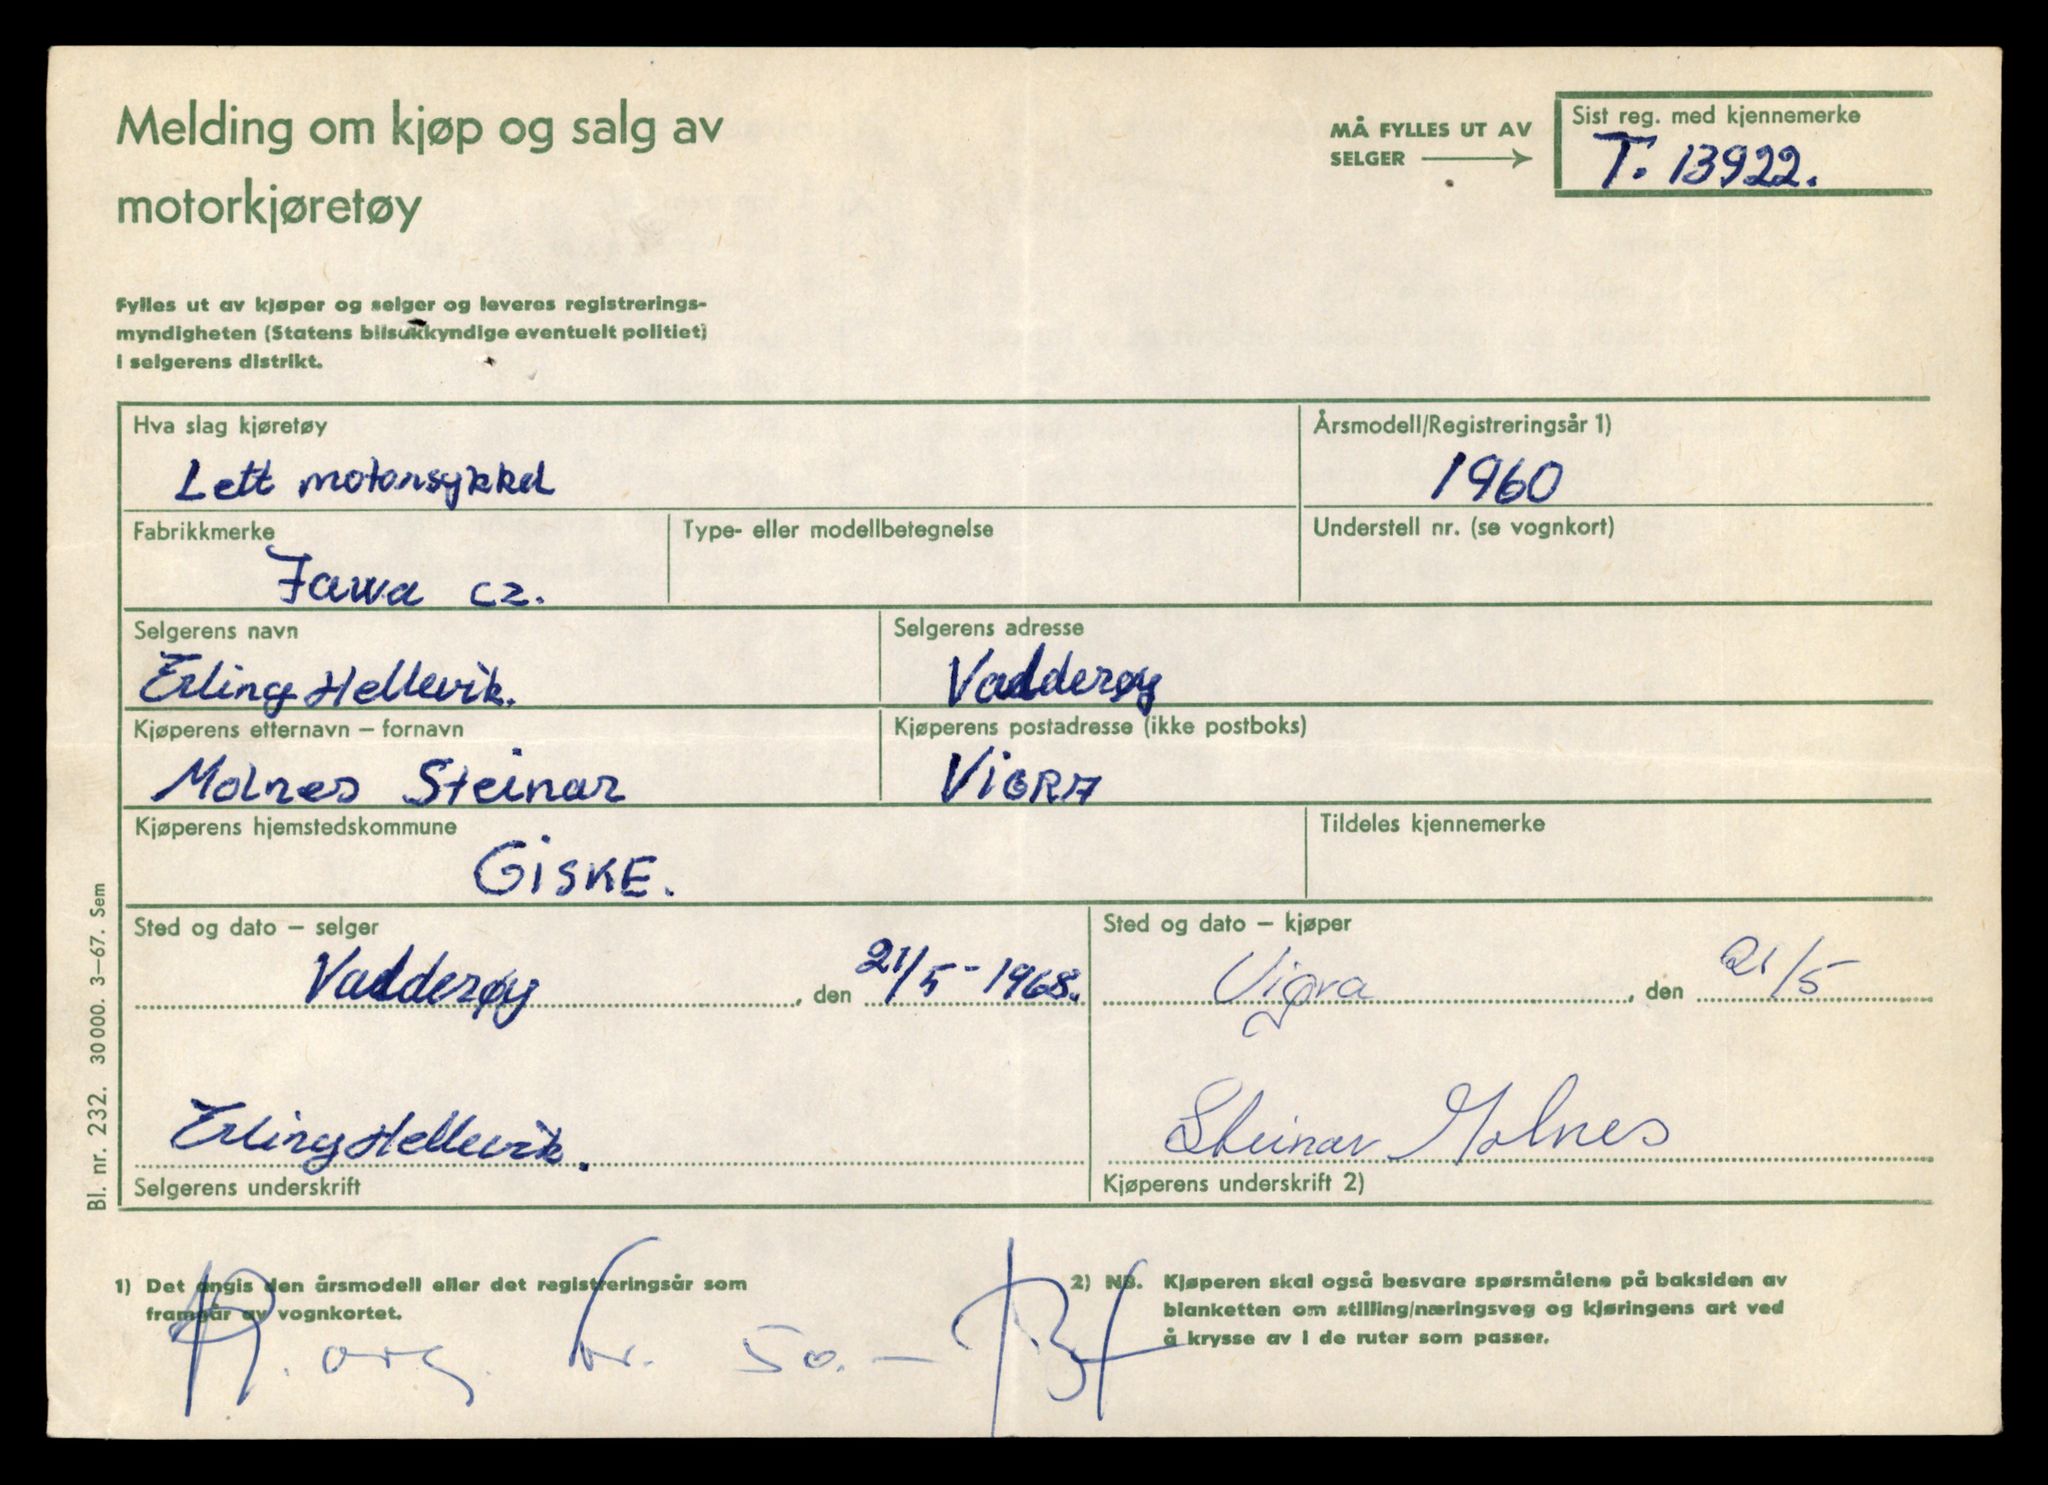 Melding om kjøp og salg av
motorkjøretøy
MÅ FYLLES UT AV
SELGER
Sist reg. med kjennemerke
T. 13922.
Fylles ut av kjøper og selger og leveres registrerings-
myndigheten (Statens bilsakkyndige eventuelt politiet)
i selgerens distrikt.
Hva slag kjøretøy
Lett motorsykkel
Årsmodell/Registreringsår 1)
1960
Fabrikkmerke
Jawa cz.
Type- eller modellbetegnelse
Understell nr. (se vognkort)
Selgerens navn
Erling Hellevik.
Selgerens adresse
Valderøy
Kjøperens etternavn – fornavn
Molnes Steinar
Kjøperens postadresse (ikke postboks)
ViGRA
Kjøperens hjemstedskommune
GiSKE.
Tildeles kjennemerke
Sted og dato – selger
Valderøy, den 21/5-1968.
Sted og dato – kjøper
Vigra, den 21/5
Erling Hellevik.
Selgerens underskrift
Steinar Molnes
Kjøperens underskrift 2)
Bl. nr. 232. 30000. 3–67. Sem
1) Det angis den årsmodell eller det registreringsår som
framgår av vognkortet.
2) NB. Kjøperen skal også besvare spørsmålene på baksiden av
blanketten om stilling/næringsveg og kjøringens art ved
å krysse av i de ruter som passer.
kr. 50.–